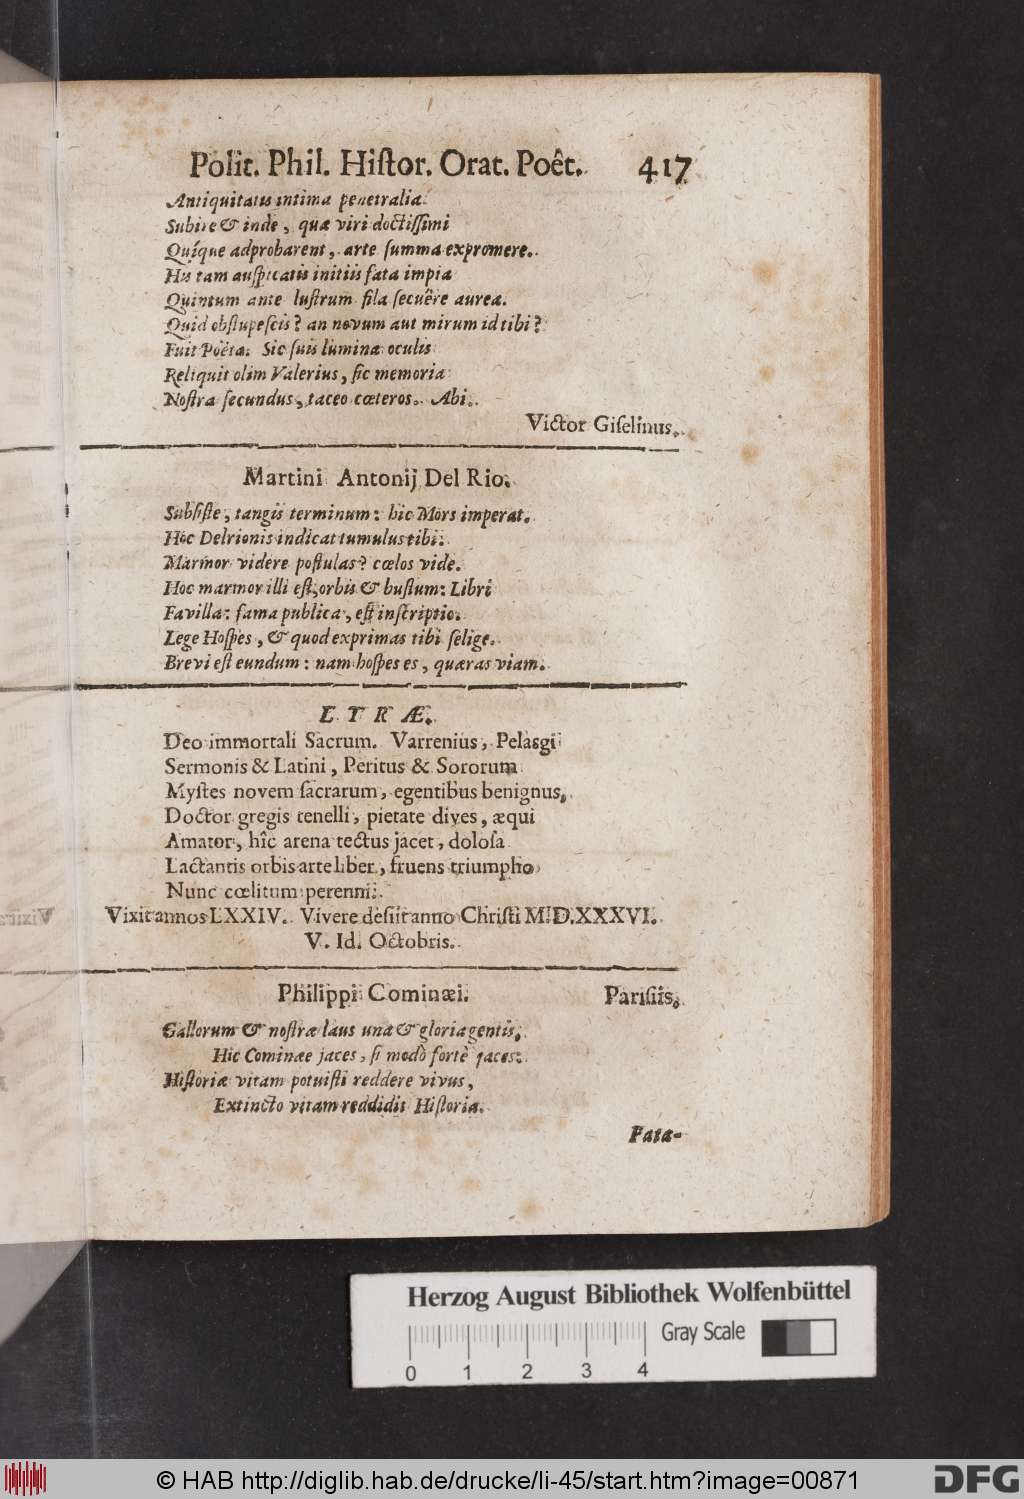 Polit. Phil. Hiſtor. Orat. Poêt. 417
Antiquitatis intima penetralia
Subire & inde, quæ viri doctiſſimi
Quíque adprobarent, arte ſumma expromere.
His tam auſpicatis initiis fata impia
Quintum ante luſtrum fila ſecuêre aurea.
Quid obſtupeſcis? an novum aut mirum id tibi?
Fuit Poëta. Sic ſuis lumina oculis
Reliquit olim Valerius, ſic memoria
Noſtra ſecundus, taceo cœteros. Abi.
Victor Giſelinus.
Martini Antonij Del Rio.
Subſiſte, tangis terminum: hic Mors imperat.
Hôc Delrionis indicat tumulus tibi.
Marmor videre poſtulas? cœlos vide.
Hoc marmor illi eſt, orbis & buſtum: Libri
Favilla: fama publica, eſt inſcriptio.
Lege Hoſpes, & quod exprimas tibi ſelige.
Brevi eſt eundum: nam hoſpes es, quæras viam.
LYRÆ.
Deo immortali Sacrum. Varrenius, Pelasgi
Sermonis & Latini, Peritus & Sororum
Myſtes novem ſacrarum, egentibus benignus,
Doctor gregis tenelli, pietate dives, æqui
Amator, hîc arena tectus jacet, doloſa
Lactantis orbis arte liber, fruens triumpho
Nunc cœlitum perenni.
Vixit annos LXXIV. Vivere deſiit anno Chriſti M.D.XXXVI.
V. Id. Octobris.
Philippi Cominæi. Pariſiis.
Gallorum & noſtræ laus una & gloria gentis,
Hic Cominæe jaces, ſi modò fortè jaces:
Hiſtoriæ vitam potuiſti reddere vivus,
Extincto vitam reddidit Hiſtoria.
Fata-
Herzog August Bibliothek Wolfenbüttel
Gray Scale
0 1 2 3 4
© HAB http://diglib.hab.de/drucke/li-45/start.htm?image=00871
DFG